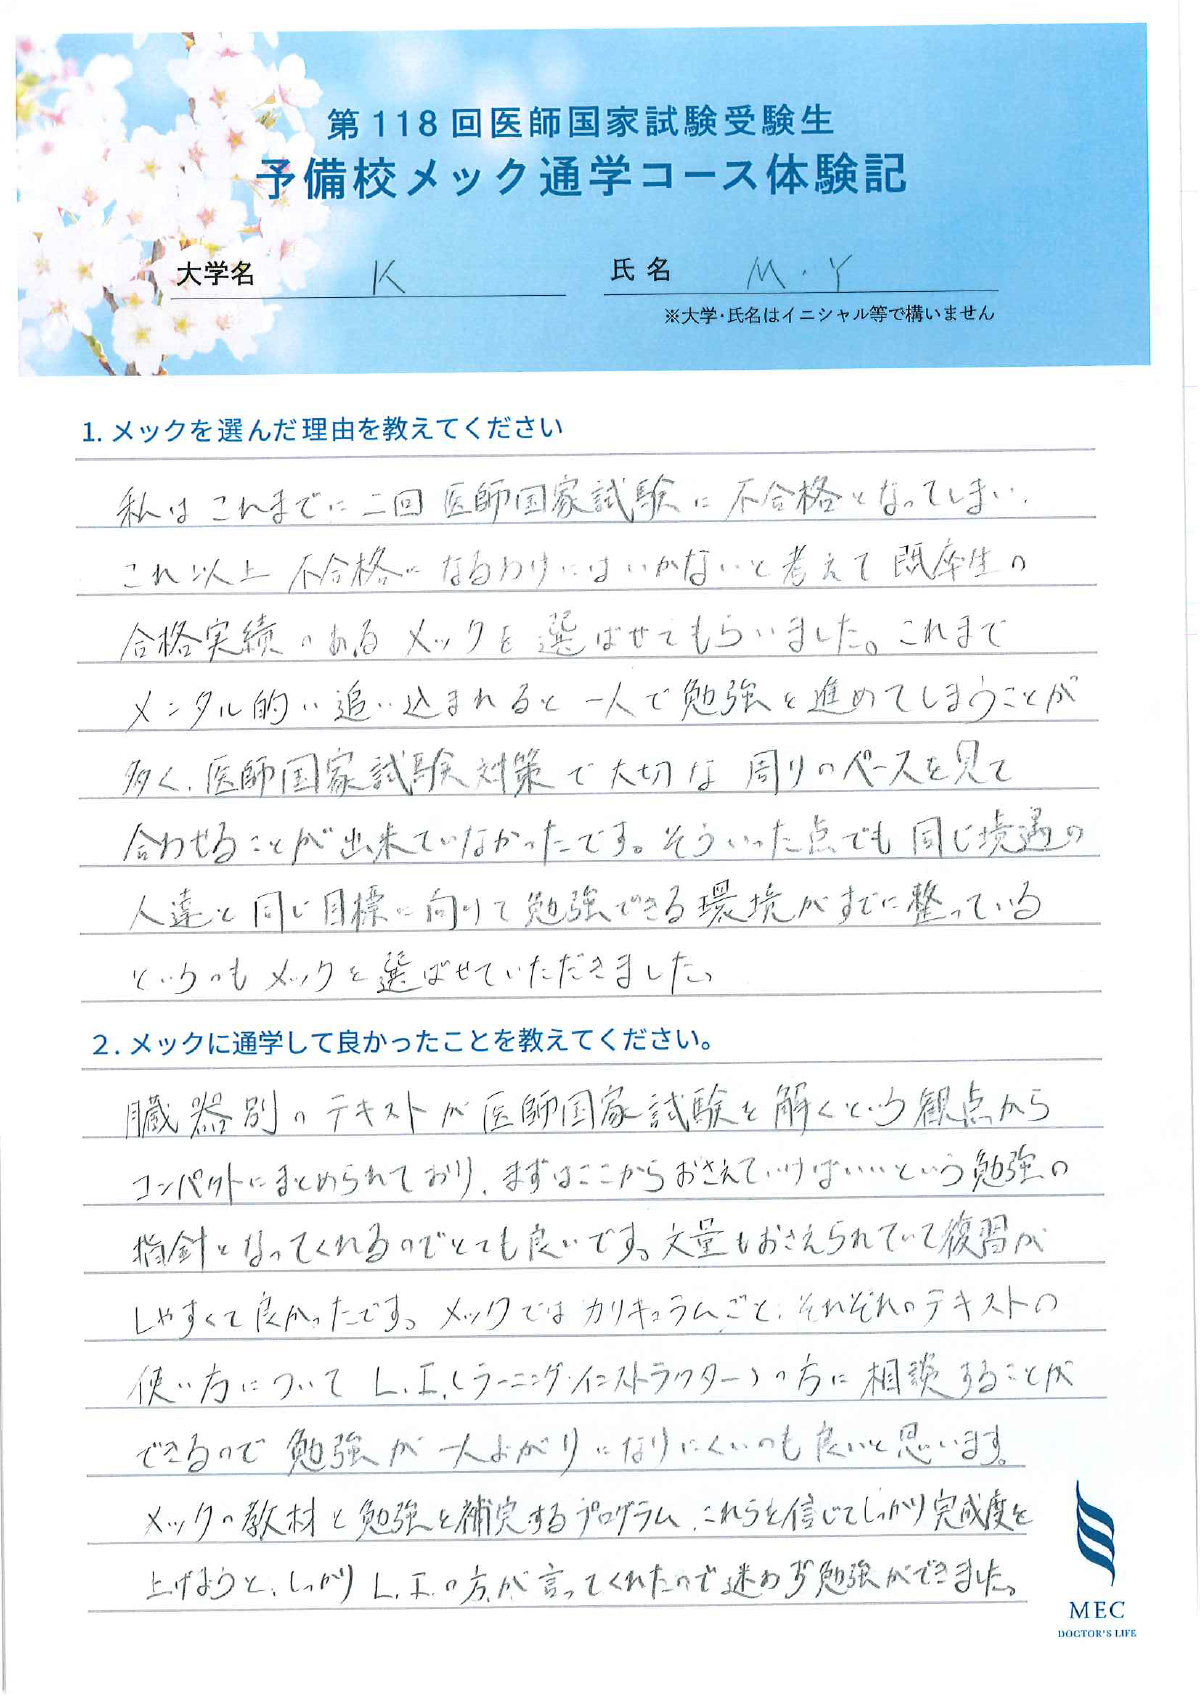 第118回医師国家試験受験生
予備校メック通学コース体験記
大学名 K 氏名 M.Y
※大学・氏名はイニシャル等で構いません
1. メックを選んだ理由を教えてください
私はこれまでに二回医師国家試験に不合格となってしまい、
これ以上不合格になるわけにはいかないと考えて既卒生の
合格実績のあるメックを選ばせてもらいました。これまで
メンタル的に追い込まれると一人で勉強を進めてしまうことが
多く、医師国家試験対策で大切な周りのペースを見て
合わせることが出来ていなかったです。そういった点でも同じ境遇の
人達と同じ目標に向けて勉強できる環境がすでに整っている
というのもメックを選ばせていただきました。
2. メックに通学して良かったことを教えてください。
臓器別のテキストが医師国家試験を解くという観点から
コンパクトにまとめられており、まずはここからおさえていけばいいという勉強の
指針となってくれるのでとても良いです。文量もおさえられていて復習が
しやすくて良かったです。メックではカリキュラムごと、それぞれのテキストの
使い方について L.I.(ラーニング・インストラクター)の方に相談することが
できるので勉強が一人よがりになりにくいのも良いと思います。
メックの教材と勉強を補完するプログラム、これらを信じてしっかり完成度を
上げようと、しっかり L.I.の方が言ってくれたので迷わず勉強ができました。
MEC
DOCTOR'S LIFE